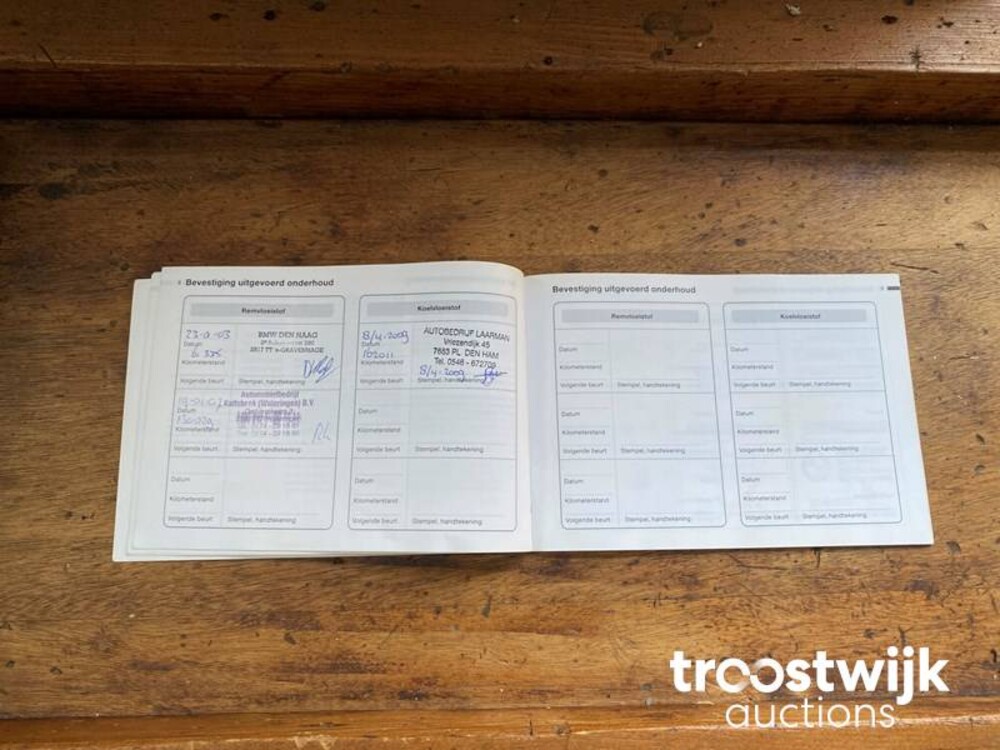 Bevestiging uitgevoerd onderhoud
Remvloeistof
BMW DEN HAAG
Datum
Kilometerstand
Volgende beurt Stempel, handtekening
Automobielbedrijf
Datum
Kilometerstand
Volgende beurt Stempel, handtekening
Datum
Kilometerstand
Volgende beurt Stempel, handtekening
Koelvloeistof
8/4-2009
AUTOBEDRIJF LAARMAN
Datum
Vriezendijk 45
102011
7683 PL DEN HAM
Kilometerstand
Tel. 0546 - 672706
8/4-2009
Volgende beurt Stempel, handtekening
Datum
Kilometerstand
Volgende beurt Stempel, handtekening
Datum
Kilometerstand
Volgende beurt Stempel, handtekening
Bevestiging uitgevoerd onderhoud
Remvloeistof
Datum
Kilometerstand
Volgende beurt Stempel, handtekening
Datum
Kilometerstand
Volgende beurt Stempel, handtekening
Datum
Kilometerstand
Volgende beurt Stempel, handtekening
Koelvloeistof
Datum
Kilometerstand
Volgende beurt Stempel, handtekening
Datum
Kilometerstand
Volgende beurt Stempel, handtekening
Datum
Kilometerstand
Volgende beurt Stempel, handtekening
troostwijk
auctions